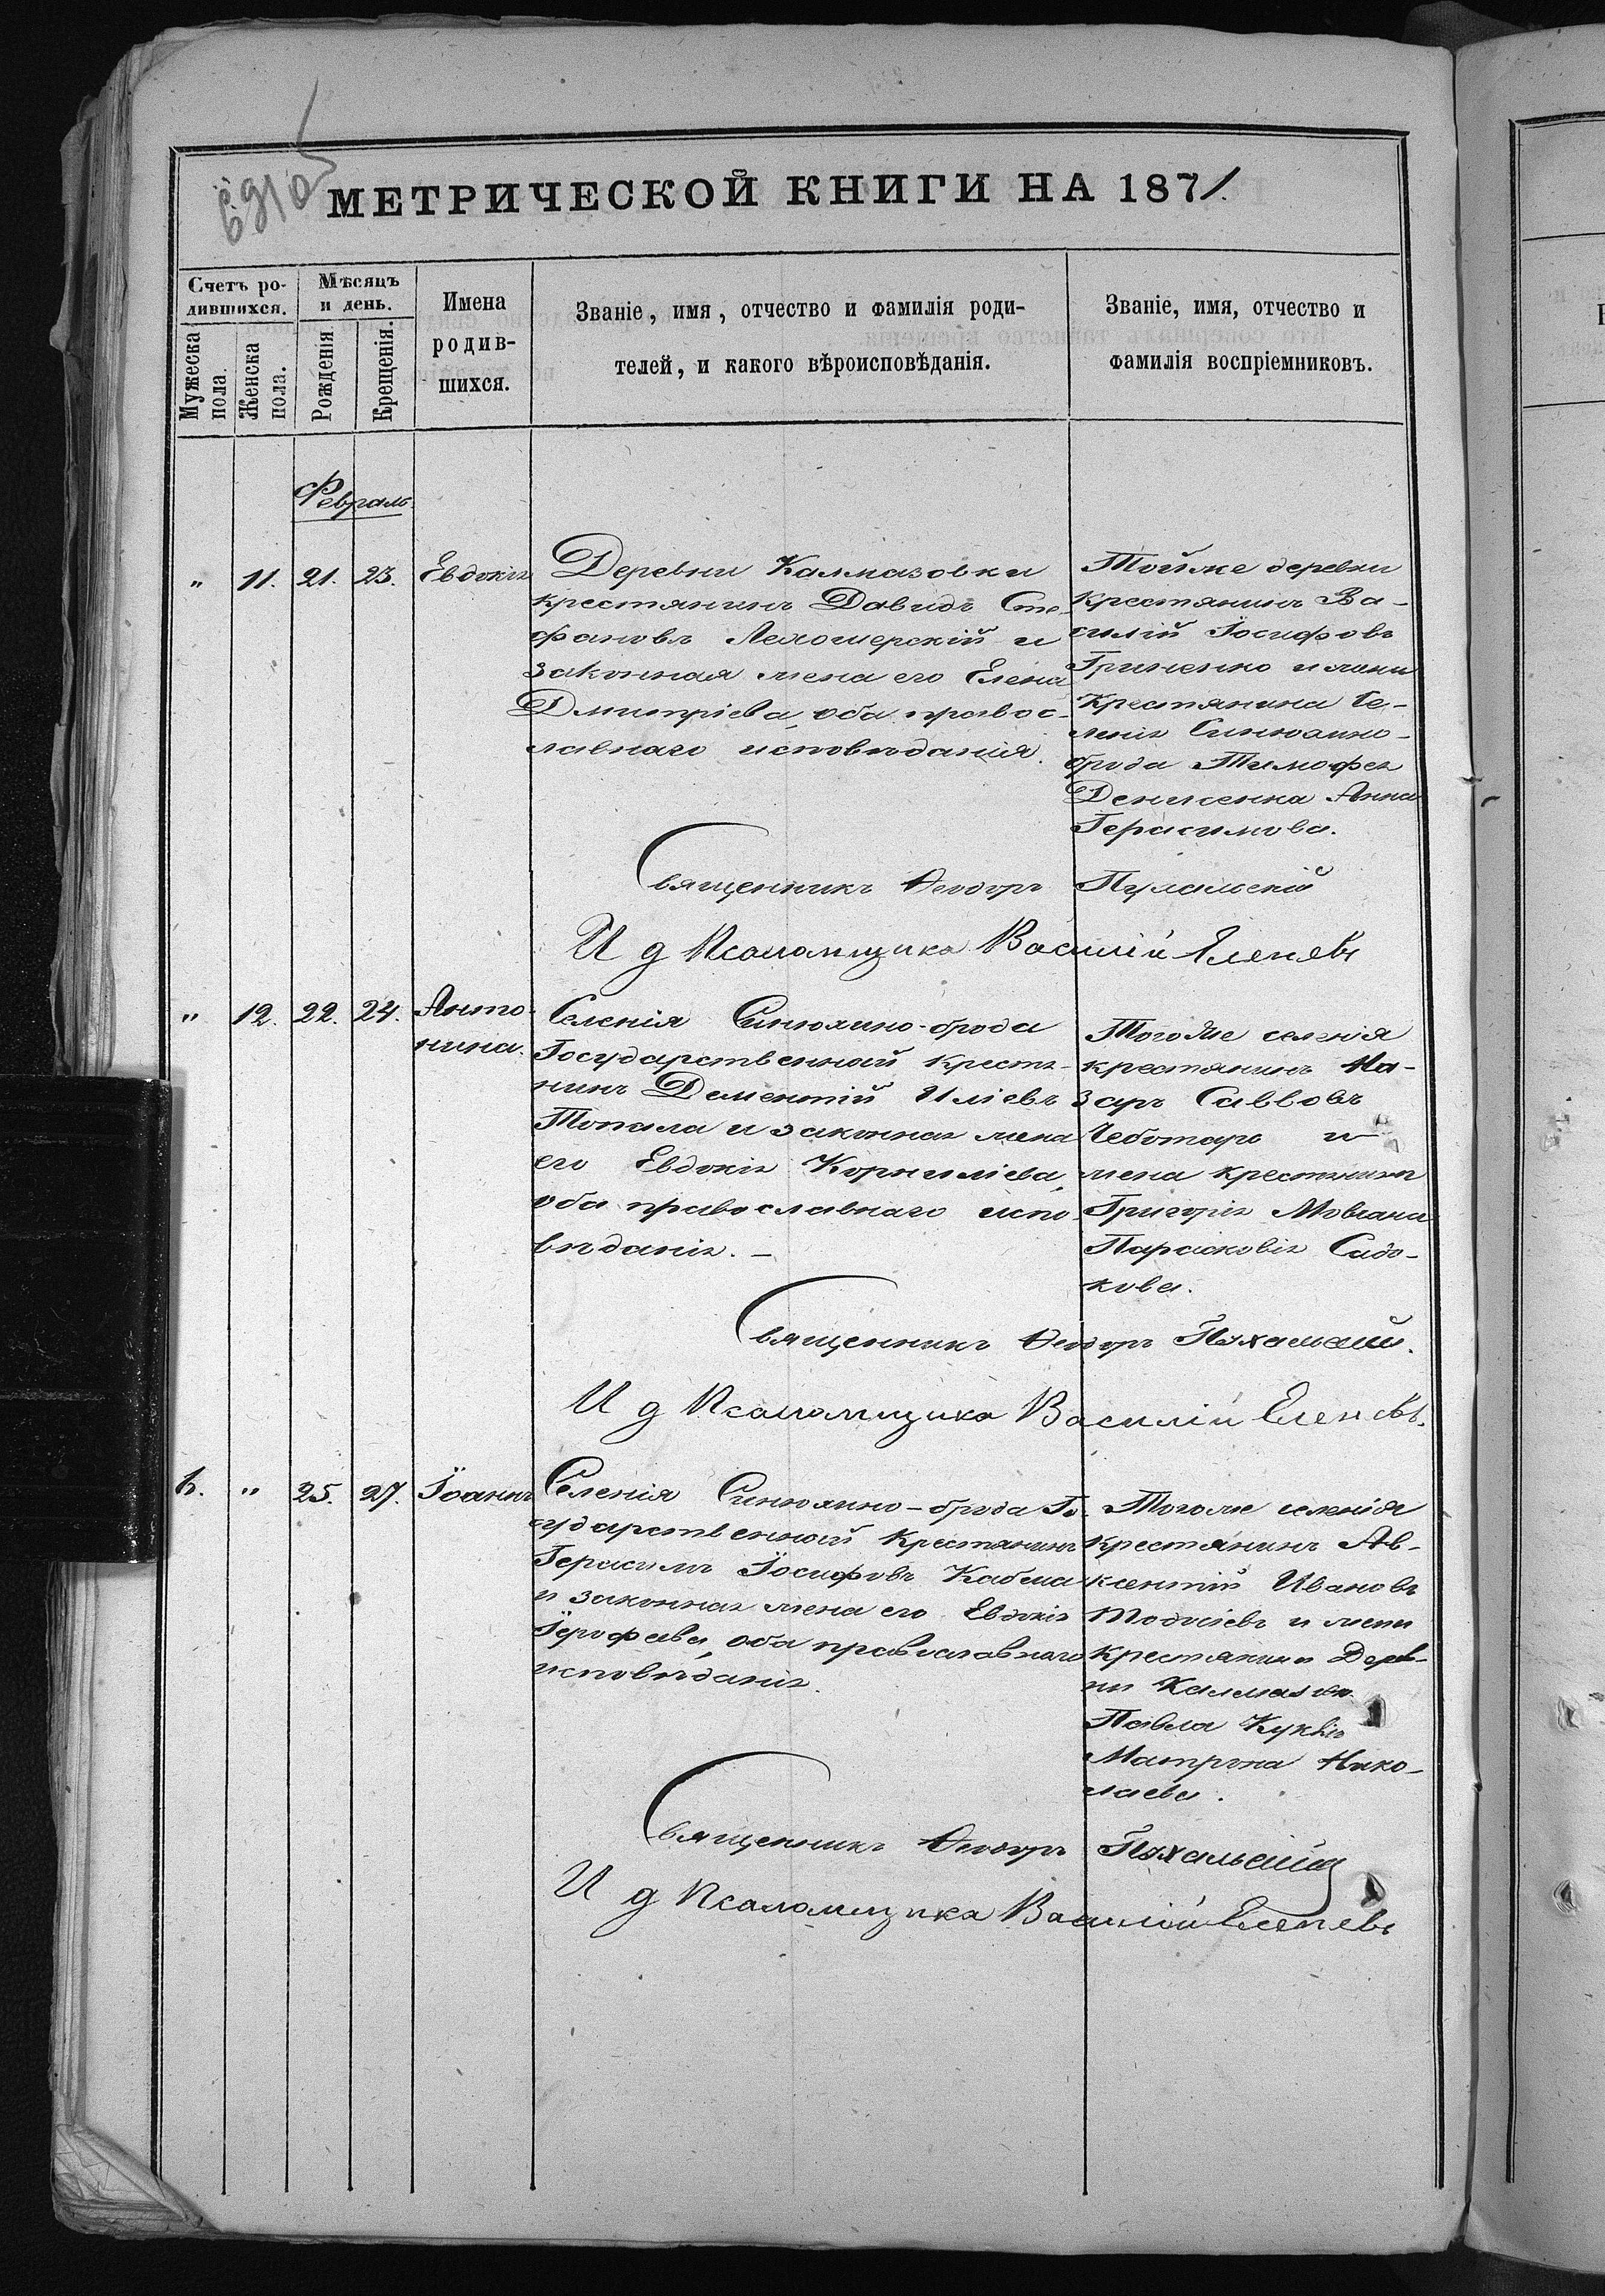 МЕТРИЧЕСКОЙ КНИГИ НА 1871.
Счетъ ро-
дившихся.
Мужеска пола.
Женска пола.
Мѣсяцъ
и день.
Рожденія
Крещенія.
Имена
родив-
шихся.
Званіе, имя, отчество и фамилія роди-
телей, и какого вѣроисповѣданія.
Званіе, имя, отчество и
фамилія воспріемниковъ.
Февраль
" 11. 21. 23. Евдокія
Деревни Калмазовки
крестянинъ Давидъ Сте-
фановъ и
законная жена его Елена
Дмитріева, оба правос-
лавнаго исповѣданія.
Тойже деревни
крестянинъ Ва-
силій Іосифовъ
Гриценко и жена
крестянина Се-
ленія Синюхино-
брода Тимофея
Денисенка Анна
Герасимова.
Священникъ Ѳеодоръ Пухальскій
И д Псаломщика Василій Еленевъ
" 12. 22. 24. Анто-
нина.
Селенія Синюхино-брода
Государственный крестя-
нинъ Дементій Иліевъ
Топала и законная жена
его Евдокія Корниліева,
оба православнаго испо-
вѣданія. -
Тогоже селенія
крестянинъ На-
заръ Савовъ
Чеботаръ и
жена крестянина
Григорія Мовчана
Параскевія Садо-
кова.
Священникъ Ѳеодоръ Пухальскій.
И д Псаломщика Василій Еленевъ.
" 25. 27. Іоаннъ
Селенія Синюхино-брода Го-
сударственный крестянинъ
Герасимъ Іосифовъ
и законная жена его Евдокія
Іерофеева, оба православнаго
исповѣданія.
Тогоже селенія
крестянинъ Ав-
ксентій Ивановъ
и жена
крестянина Дерев-
ни
Павла
Матрона Нико-
лаева.
Священникъ Ѳеодоръ Пухальскій
И д Псаломщика Василій Еленевъ